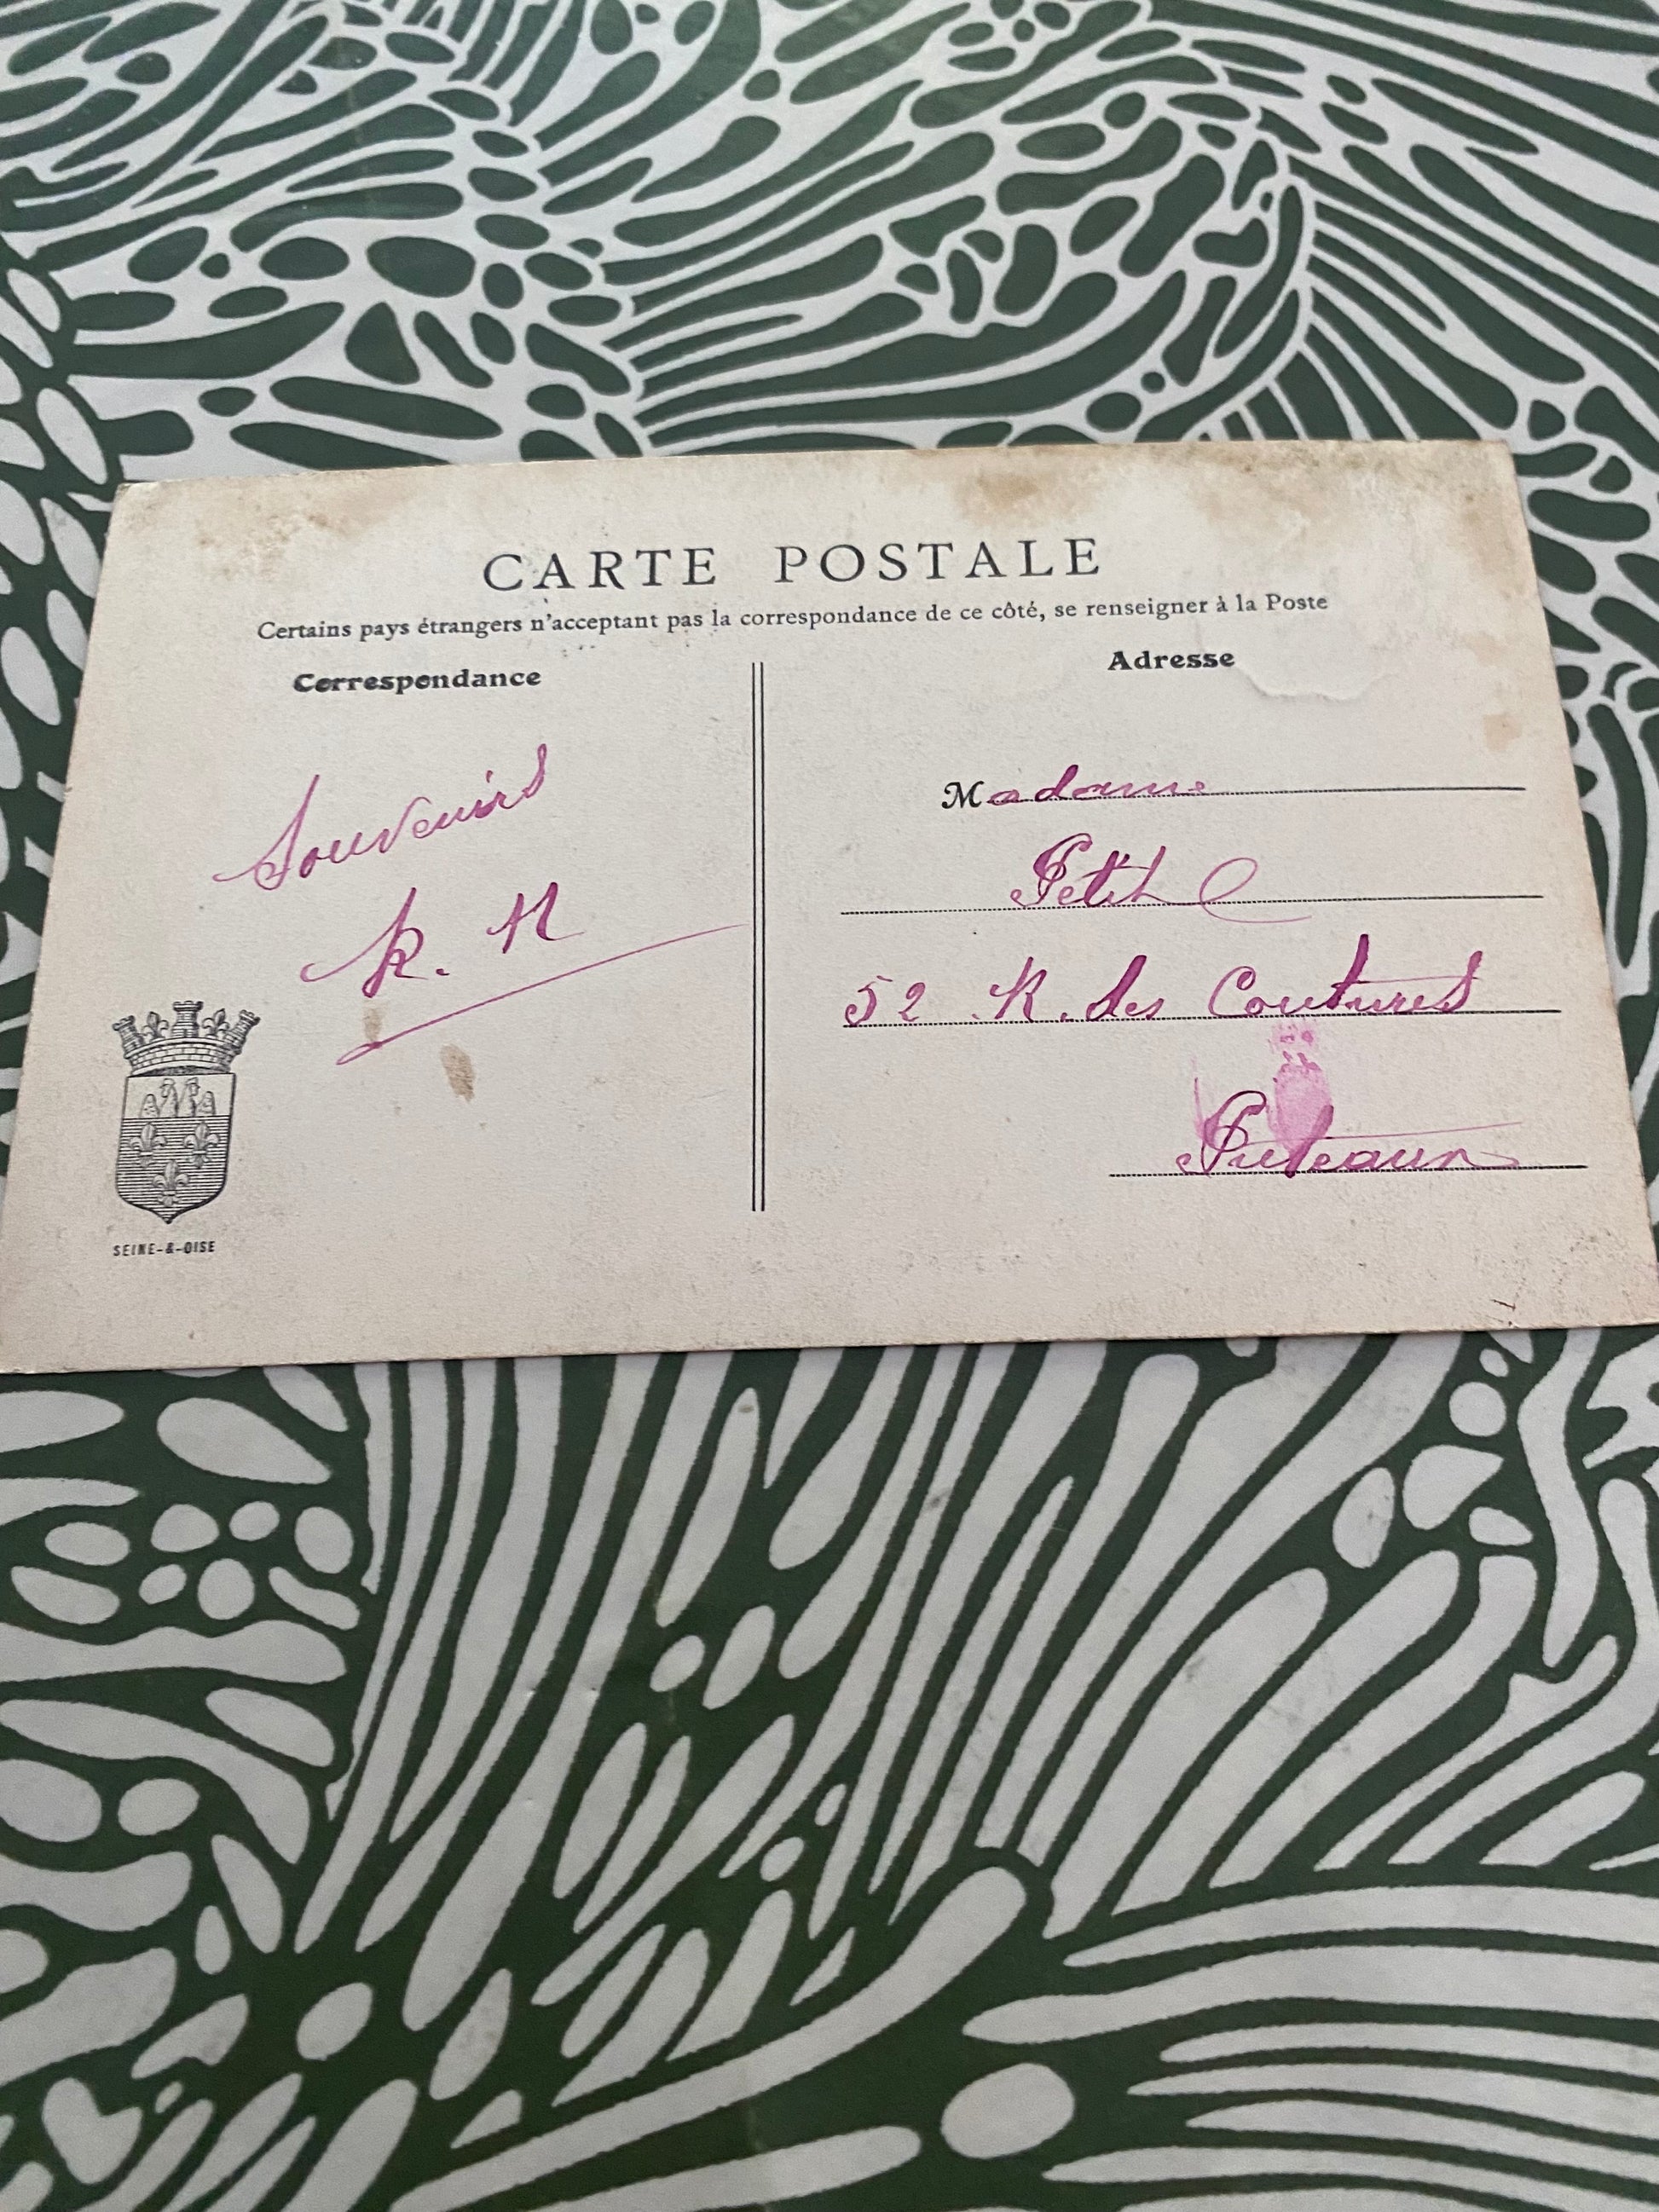 CARTE POSTALE
Certains pays étrangers n'acceptant pas la correspondance de ce côté, se renseigner à la Poste
Correspondance
Adresse
Souvenirs
R. N
Madame
Petit
52 R. des Coutures
Puteaux
SEINE-&-OISE